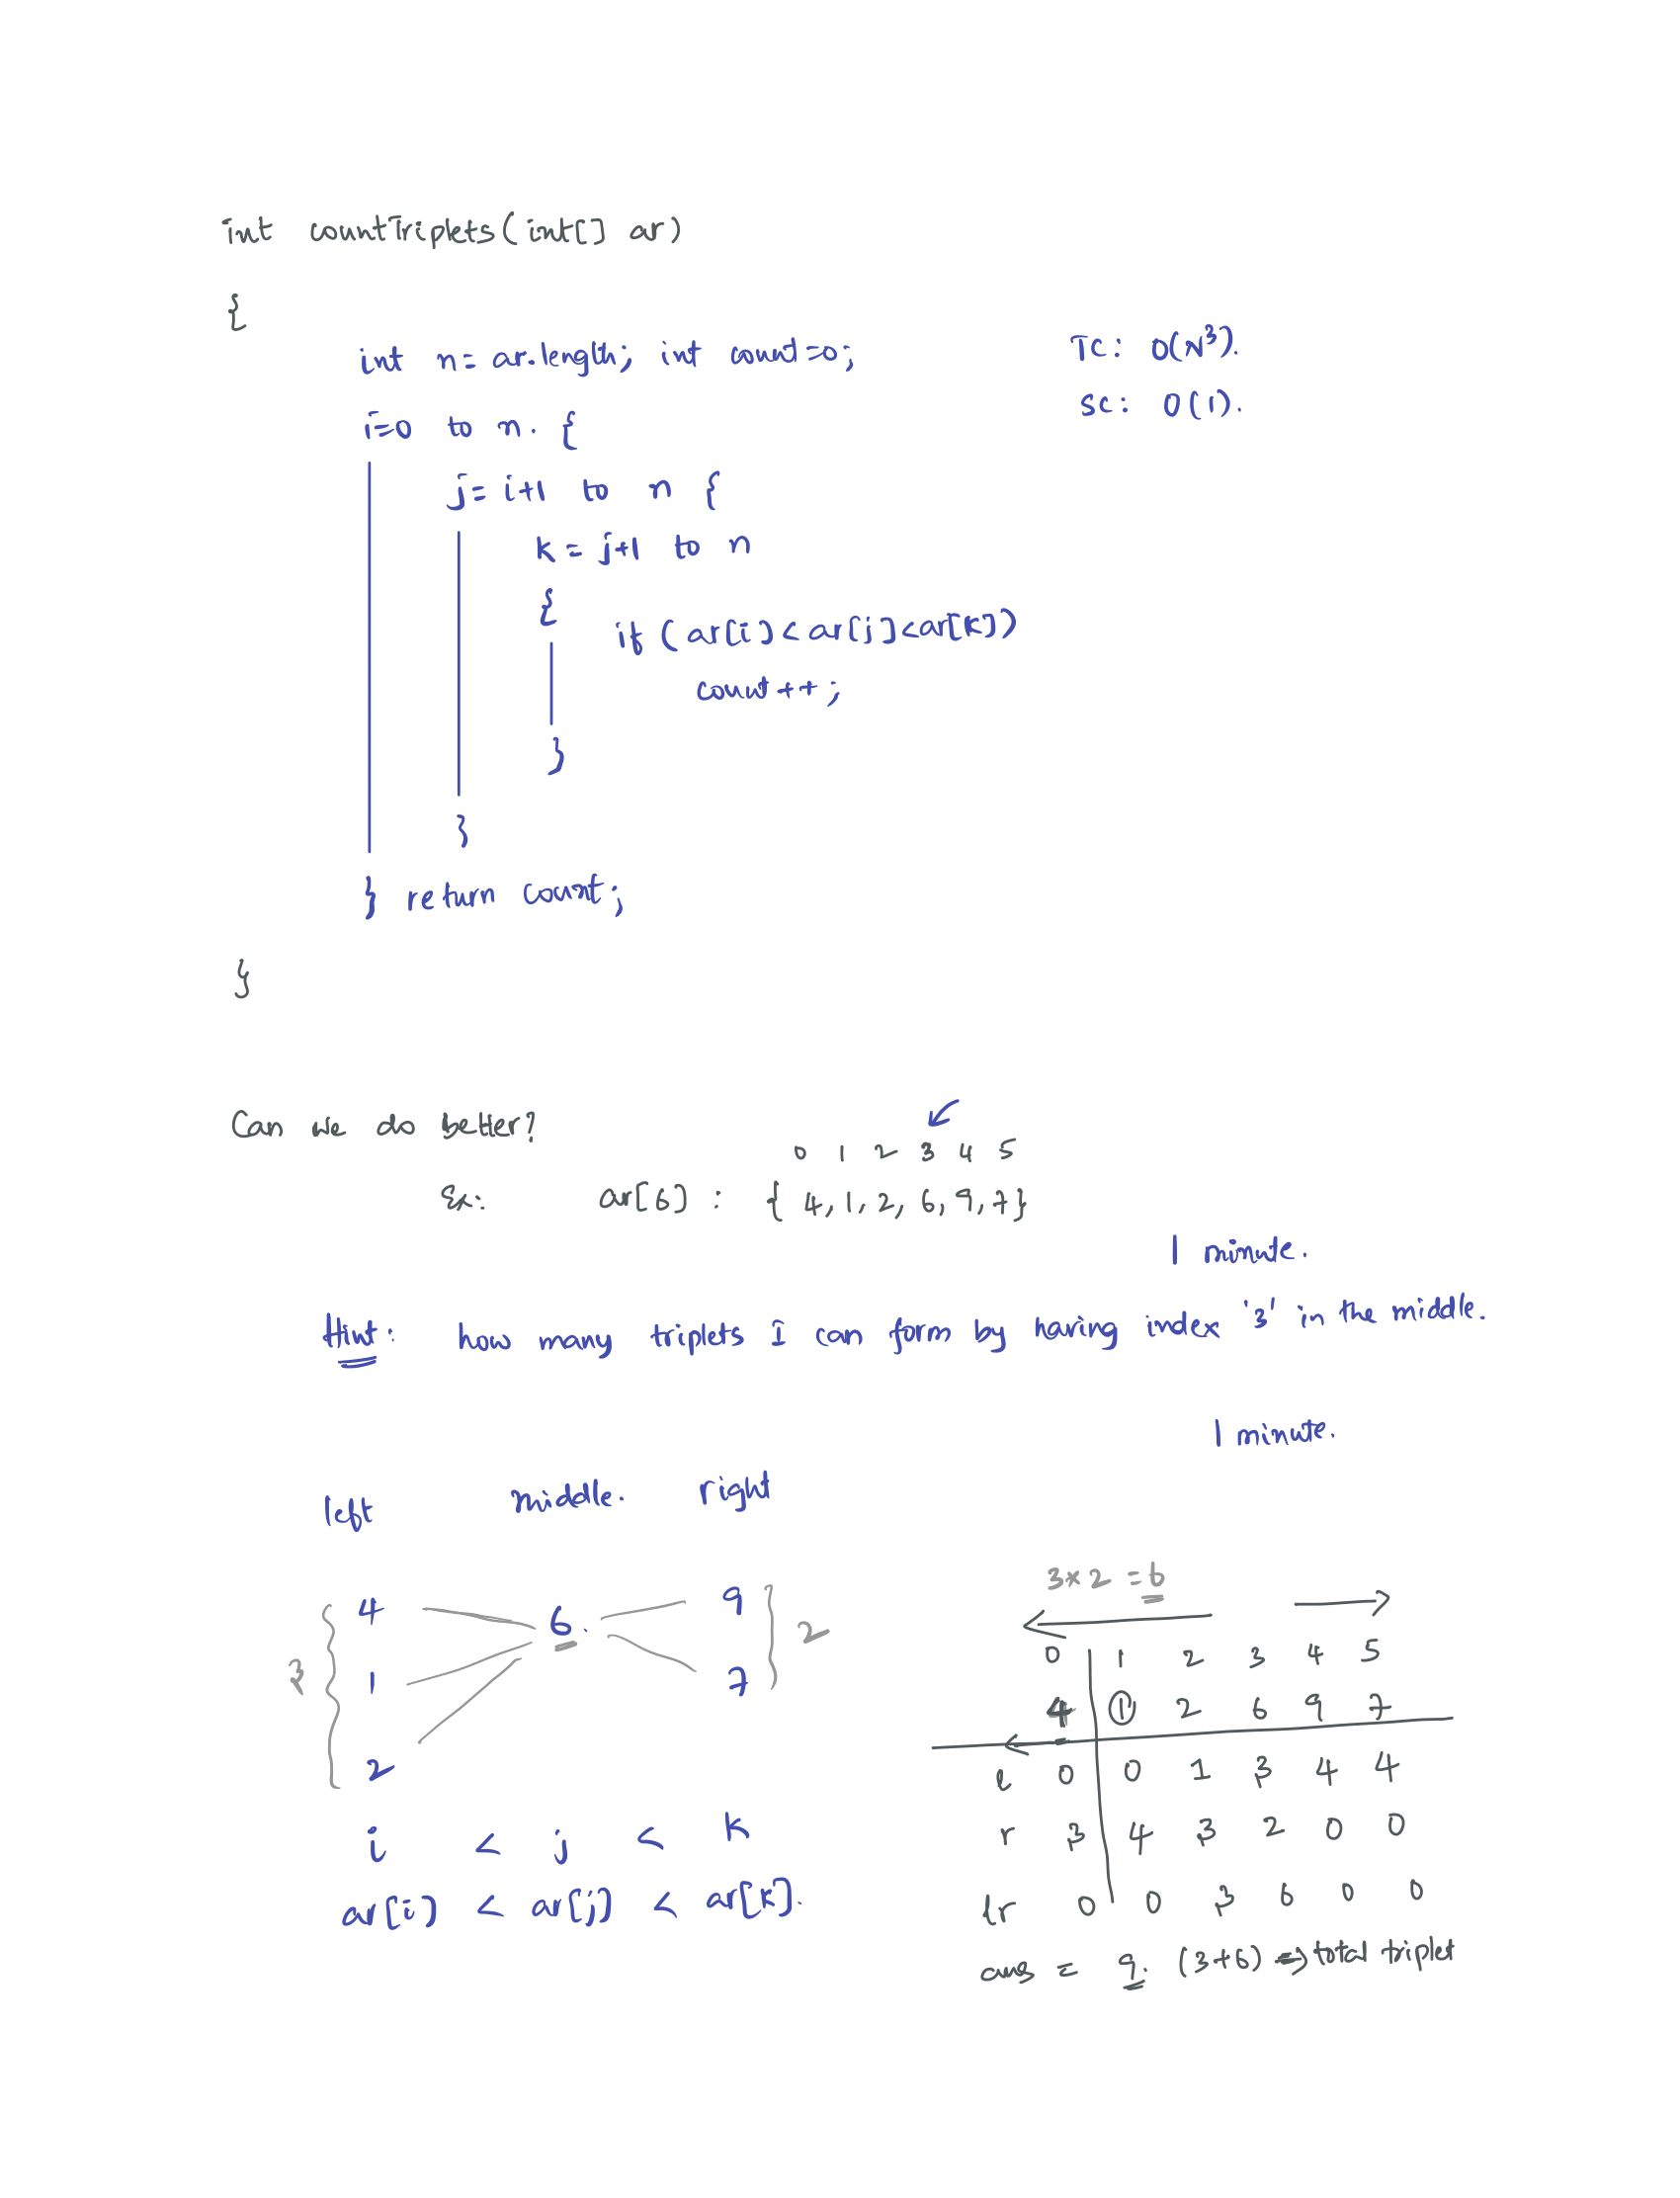 int countTriplets(int[] ar)
{
int n=ar.length; int count=0;
TC: O(N³).
SC: O(1).
i=0 to n. {
j=i+1 to n {
k=j+1 to n
{
if (ar[i]<ar[j]<ar[k])
count++;
}
}
} return count;
}
Can we do better?
0 1 2 3 4 5
Ex: ar[6] : {4,1,2,6,9,7}
1 minute.
Hint: how many triplets I can form by having index '3' in the middle.
1 minute.
left middle. right
4 6. 9
3 1 7 2
2
i < j < k
ar[i] < ar[j] < ar[k].
3×2=6
0 1 2 3 4 5
4 1 2 6 9 7
l 0 0 1 3 4 4
r 3 4 3 2 0 0
lr 0 0 3 6 0 0
ans = 9. (3+6) => total triplet